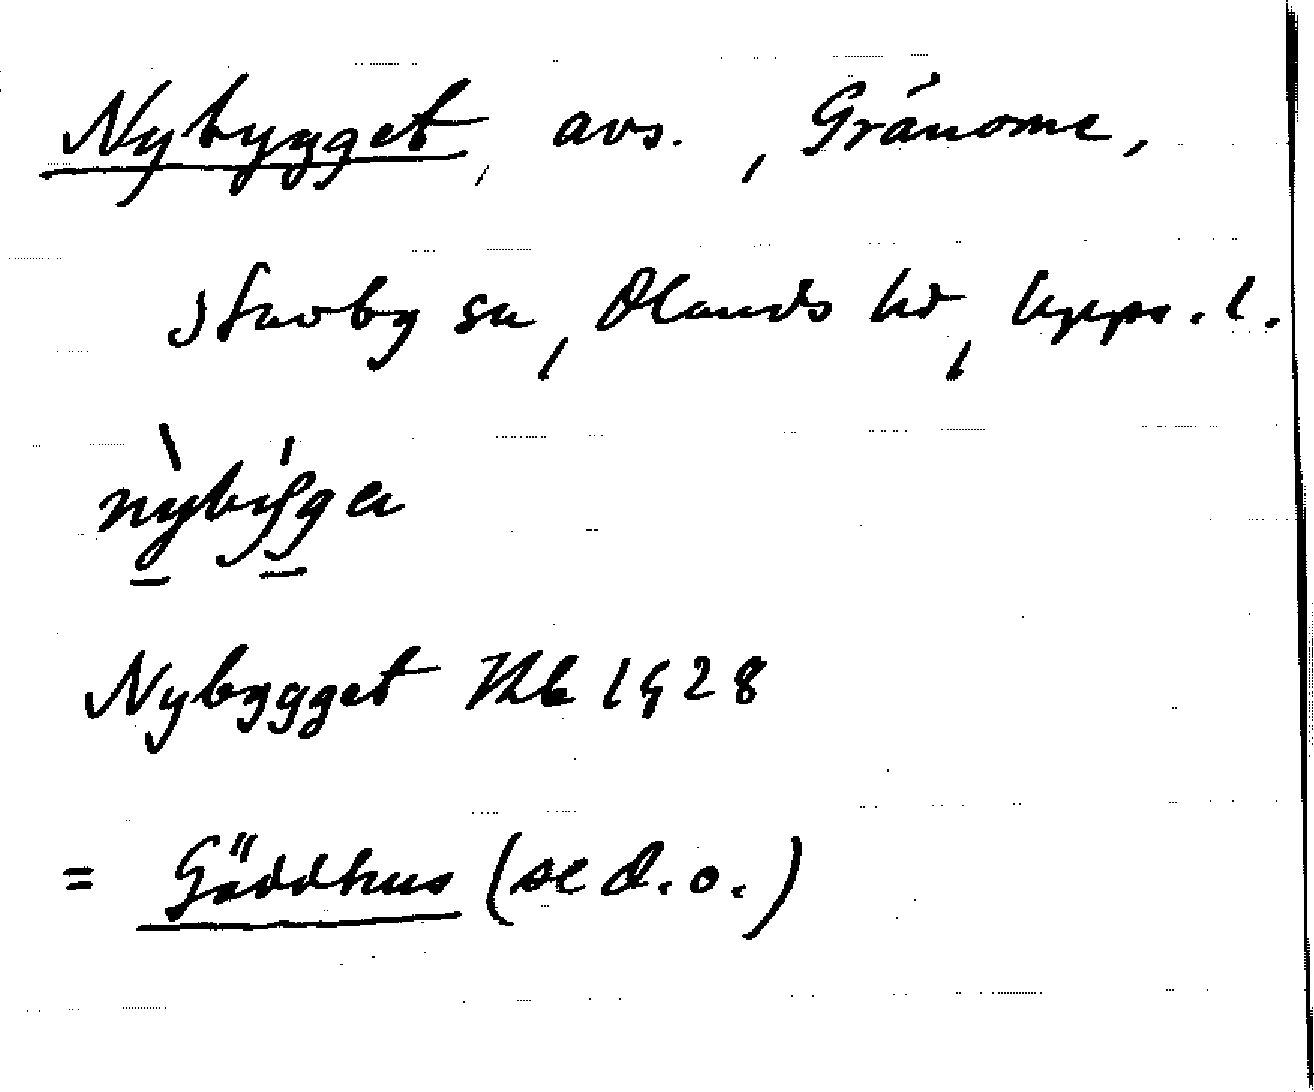 Nybygget, avs., Gränome,
Stavby sn, Olands hd, Upps. l.
Nybygget Hkb 1928
= Gäddhus (se d.o.)